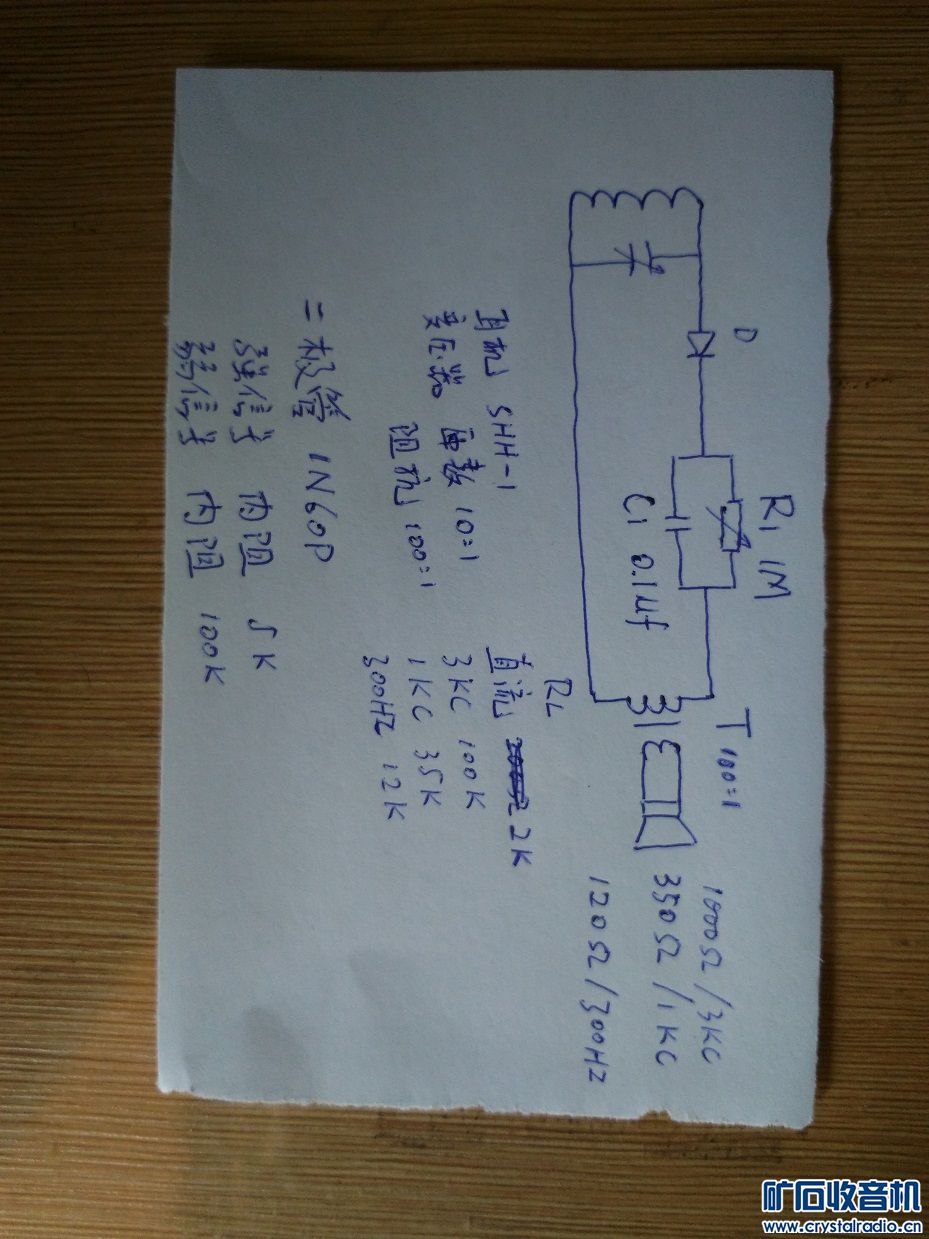 D
R1 1M
C1 0.1μf
T 100=1
1000Ω/3KC
350Ω/1KC
120Ω/300HZ
耳机 SHH-1
变压器 匝数 10=1
阻抗 100=1
RL
直流 2K
3KC 100K
1KC 35K
300HZ 12K
二极管 1N60P
强信号 内阻 5K
弱信号 内阻 100K
矿石收音机
www.crystalradio.cn